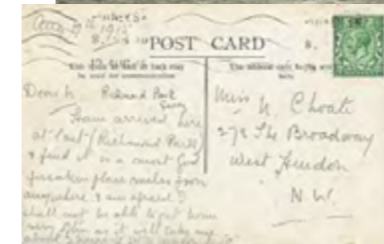 1915
POST CARD
Dear N Richmond Park
Surrey
Have arrived here
at last (Richmond Park)
& find it is a most God
forsaken place miles from
anywhere & am afraid I
shall not be able to get home
very often as it will take me
Miss N. Choat
272 The Broadway
West Hendon
N.W.